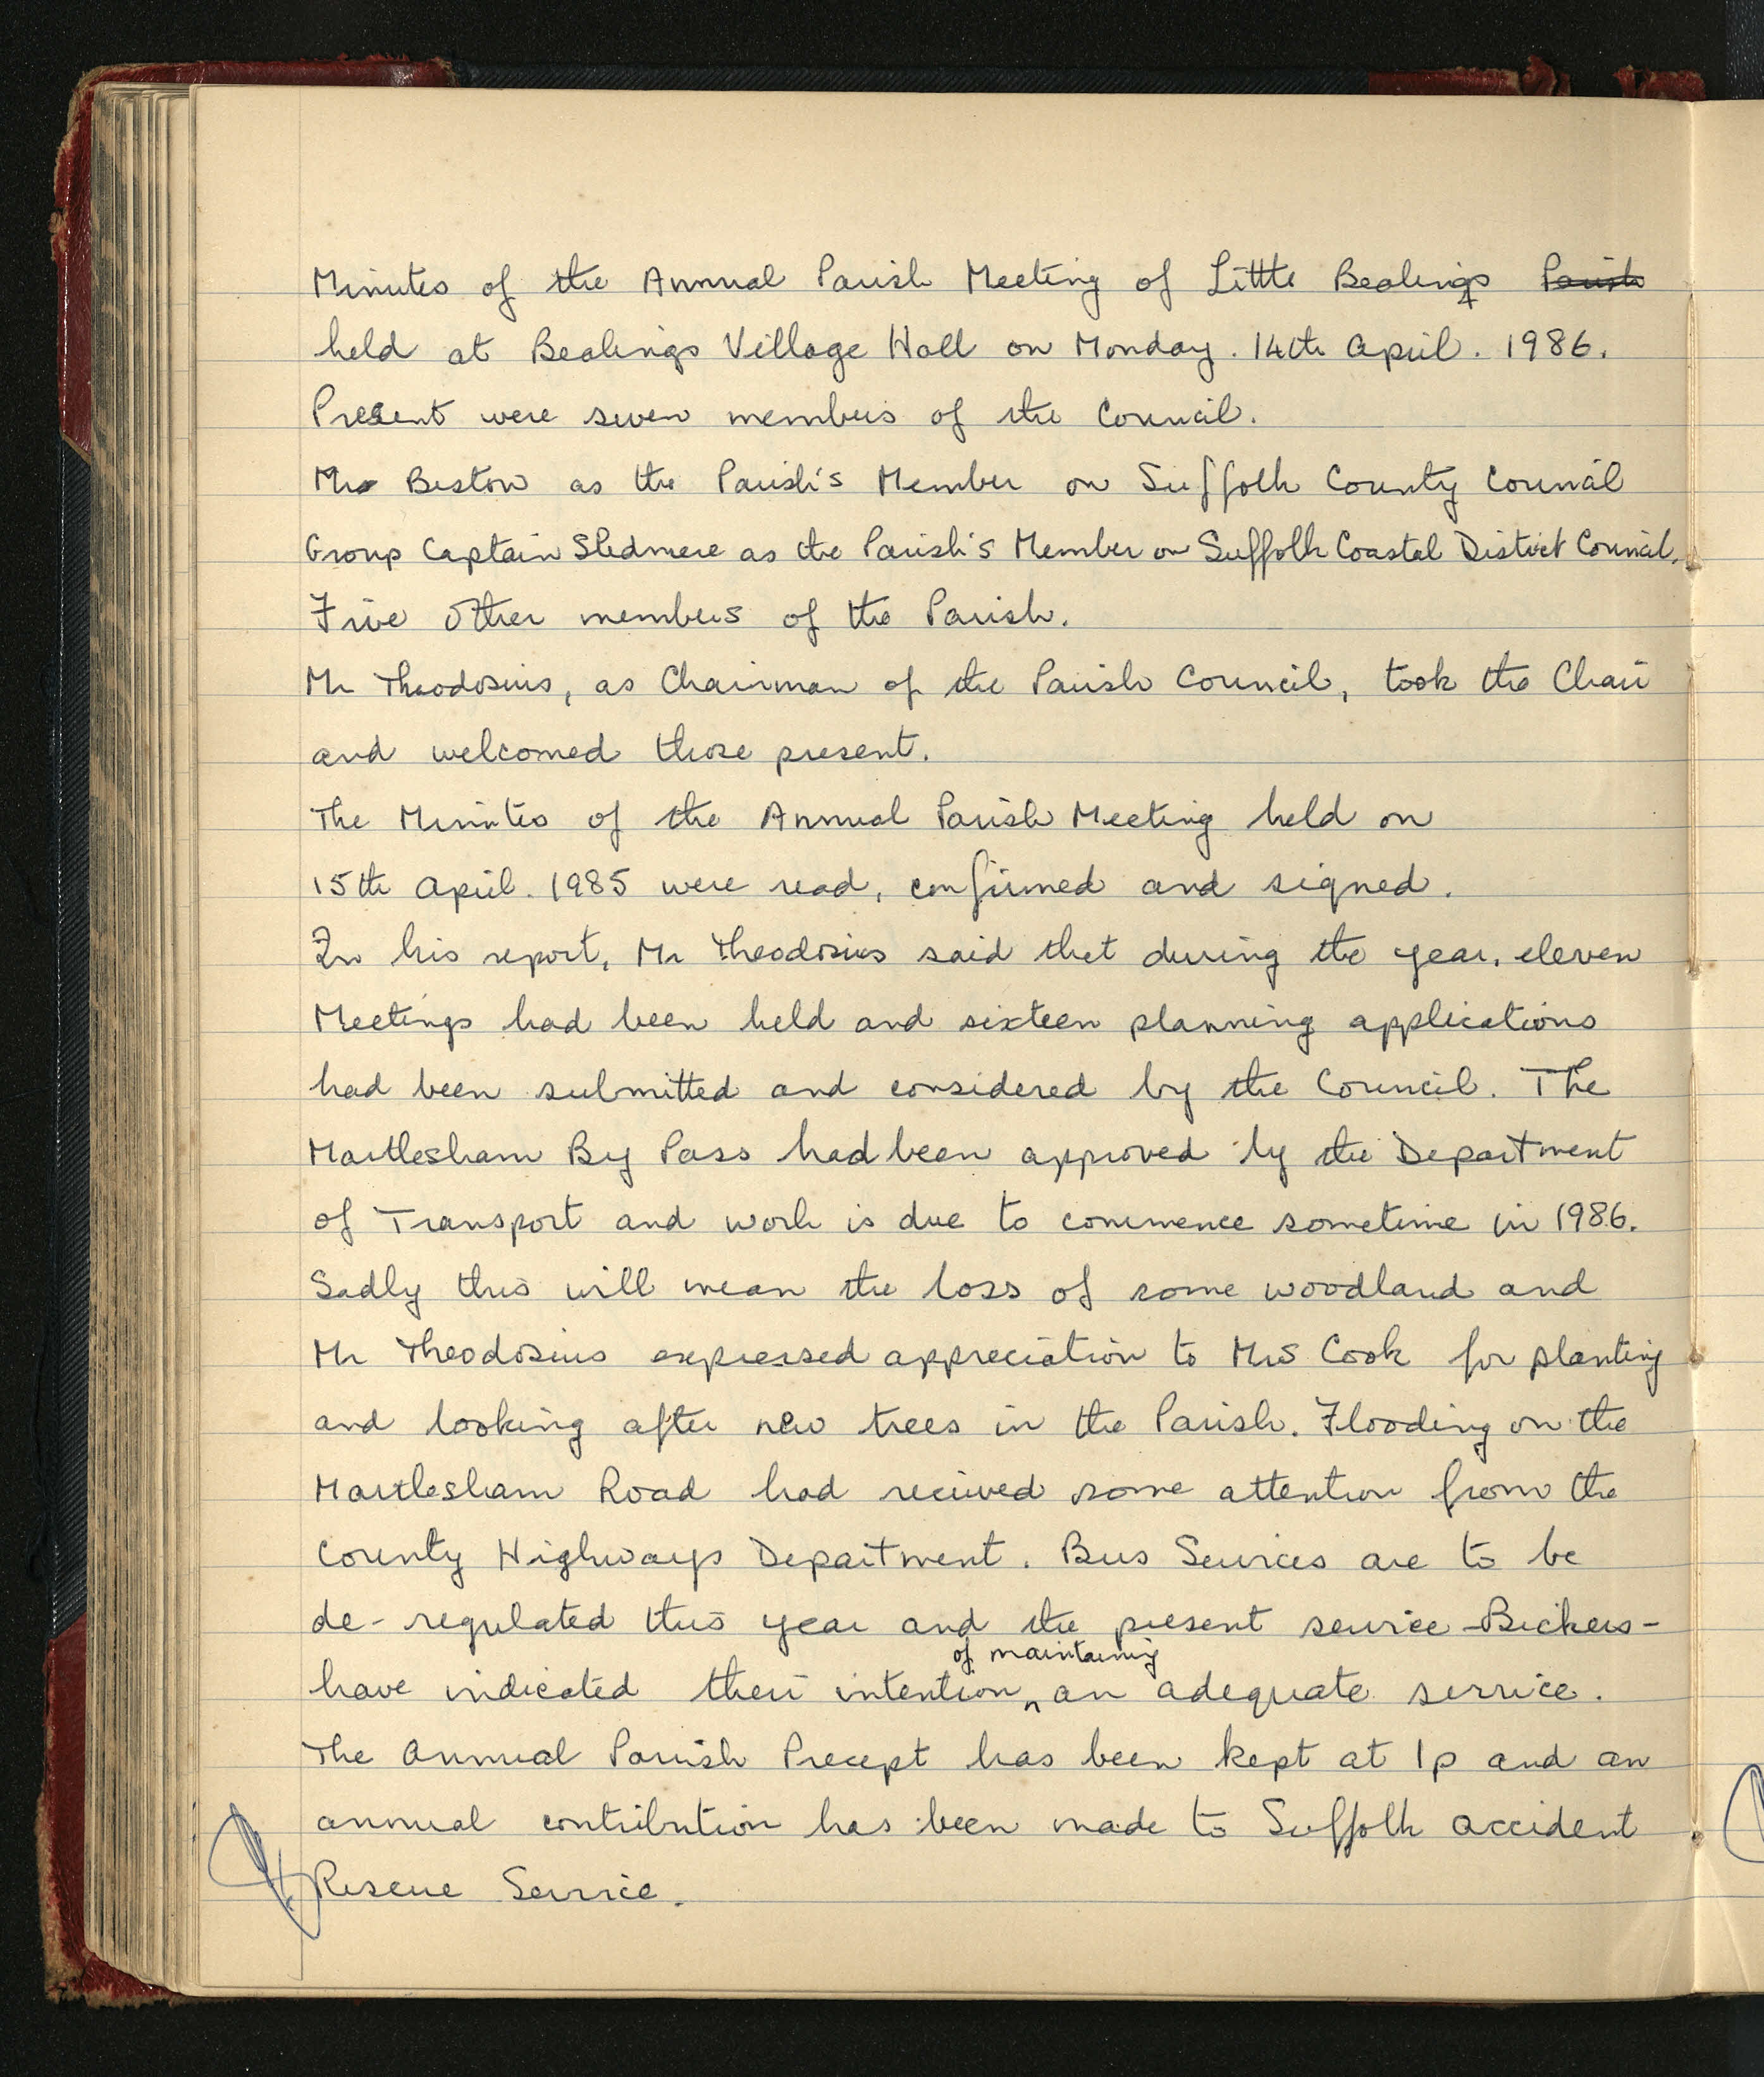 Minutes of the Annual Parish Meeting of Little Bealings Parish
held at Bealings Village Hall on Monday. 14th April. 1986.
Present were seven members of the Council.
Mrs Beston as the Parish's Member on Suffolk County Council
Group Captain Sledmere as the Parish's Member on Suffolk Coastal District Council.
Five other members of the Parish.
Mr Theodosius, as Chairman of the Parish Council, took the Chair
and welcomed those present.
The Minutes of the Annual Parish Meeting held on
15th April. 1985 were read, confirmed and signed.
In his report, Mr Theodosius said that during the year, eleven
Meetings had been held and sixteen planning applications
had been submitted and considered by the Council. The
Martlesham By Pass had been approved by the Department
of Transport and work is due to commence sometime in 1986.
Sadly this will mean the loss of some woodland and
Mr Theodosius expressed appreciation to Mrs Cook for planting
and looking after new trees in the Parish. Flooding on the
Martlesham Road had recieved some attention from the
County Highways Department. Bus Services are to be
de-regulated this year and the present service - Bickers -
have indicated their intention of maintaining an adequate service.
The Annual Parish Precept has been kept at 1p and an
annual contribution has been made to Suffolk Accident
Rescue Service.